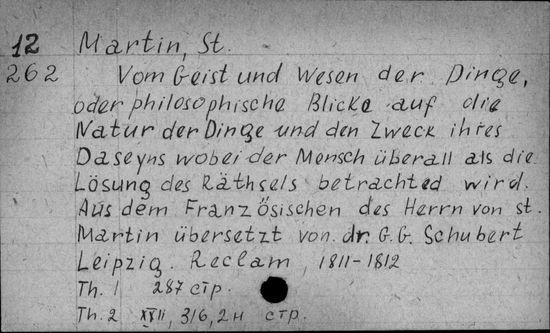 12 Martin, St.
262 Vom Geist und Wesen der Dinge,
oder philosophische Blicke auf die
Natur der Dinge und den Zweck ihres
Daseyns wobei der Mensch überall als die
Lösung des Räthsels betrachted wird.
Aus dem Französischen des Herrn von st.
Martin übersetzt von dr. G. G. Schubert
Leipzig. Reclam, 1811-1812
Th. 1 287 стр.
Th. 2 XXII, 316, 2н стр.